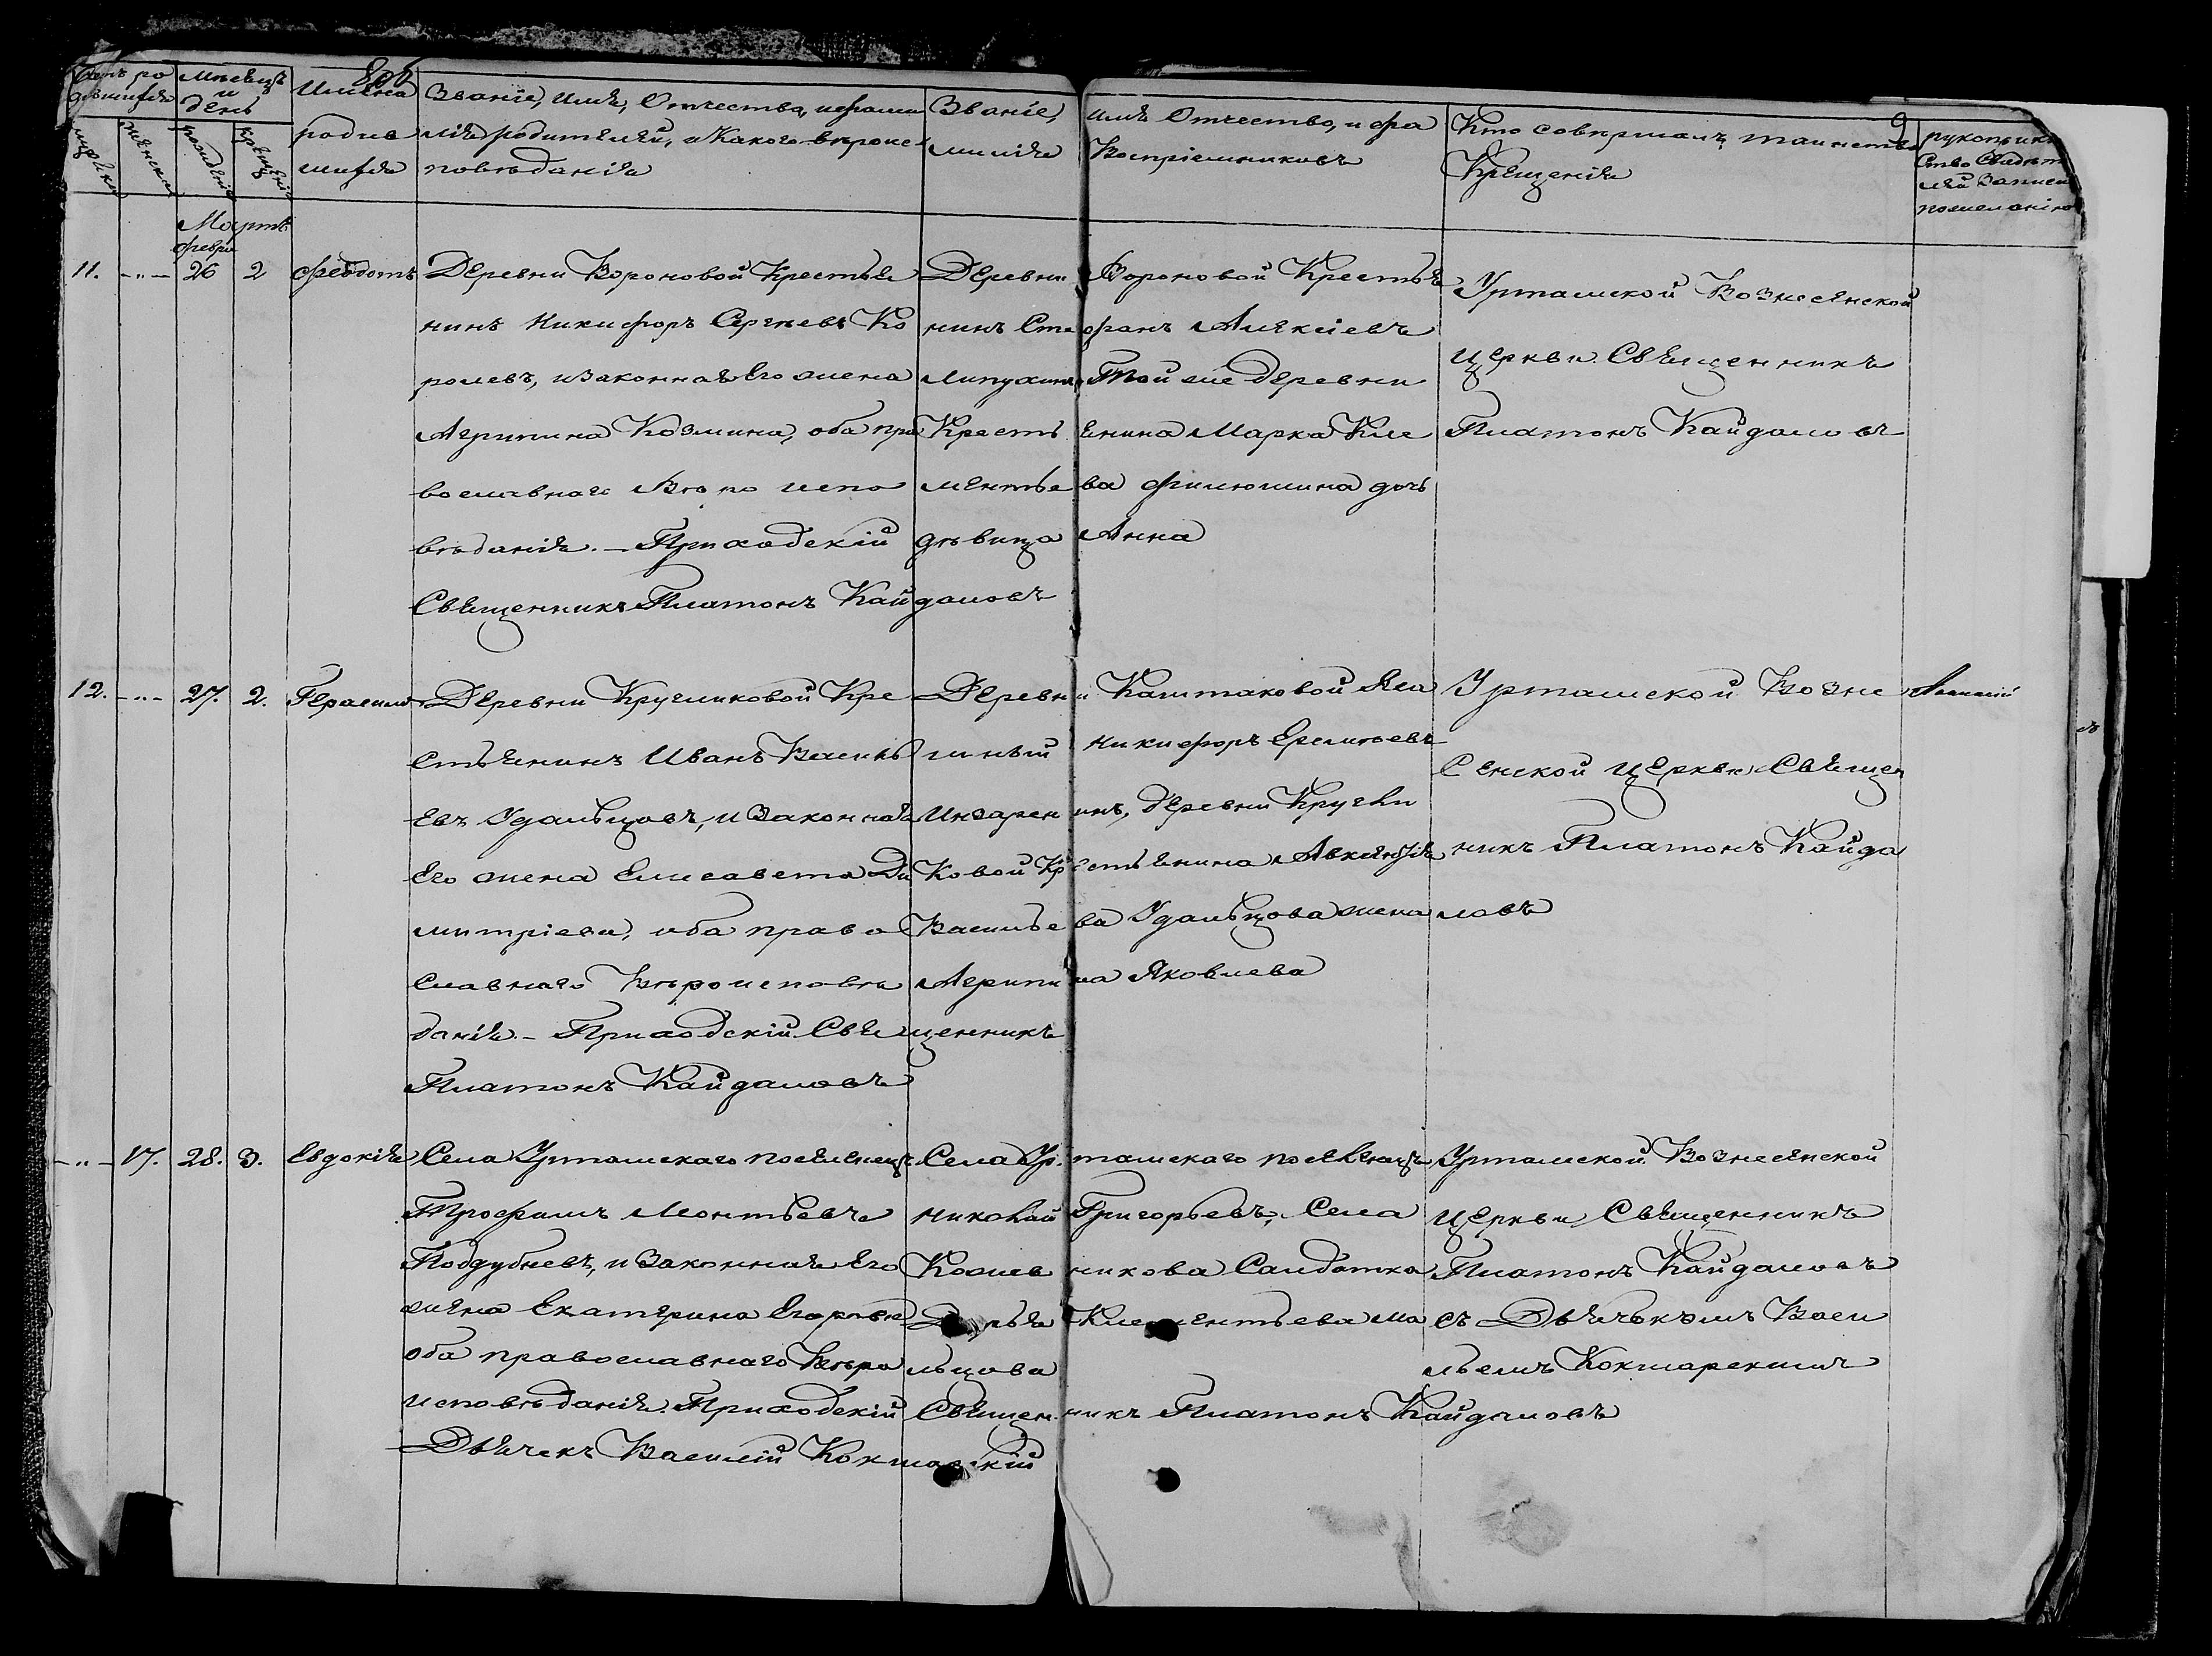 806
9
Счетъ родившихся
мужеска
женска
Мѣсяцъ и день
рожденія
крещенія
Имена родившихся
Званіе, имя, Отчество, и фами
лія родителей, и Какого вѣроис
повѣданія
Званіе, имя Отчество, и фа
милія Воспріемниковъ
Кто совершалъ таинство
Крещенія
рукоприклад
ство Свидѣте
лей Записи
по желанію
Мартъ
феврал
11. -„- 26 2 Феодотъ
Деревни Вороновой Крестья
нинъ Никифоръ Сергѣевъ Ко
ролевъ, и Законная Его жена
Агрипина Козмина, оба пра
вославнаго Вѣроиспо
вѣданія. — Приходскій
Священникъ Платонъ Кайдаловъ
Деревни Вороновой Крестья
нинъ Стефанъ Алексіевъ
Липухинъ Той же деревни
Крестьянина Марка Кле
ментьева Филюшина дочь
дѣвица Анна
Урташской Вознесенской
Церкви Священникъ
Платонъ Кайдаловъ
12. -„- 27. 2. Герасимъ
Деревни Кругликовой Кре
стьянинъ Иванъ Василь
евъ Удальцовъ, и Законная
Его жена Елисавета Ди
митріева, оба право
славнаго Вѣроисповѣ
данія. - Приходскій Священникъ
Платонъ Кайдаловъ
Деревни Каштаковой Яса
шный Никифоръ Еремѣевъ
деревни Кругли
ковой Крестьянина Авксентія
Васильева Удальцова жена
Агрипина Яковлева
Урташской Возне
сенской Церкви Священ
никъ Платонъ Кайда
ловъ
-„- 17. 28. 3. Евдокія
Села Урташскаго поселенецъ
Трофимъ Леонтьевъ
Поддубневъ, и Законная Его
жена Екатерина Егорова
оба православнаго Вѣро
исповѣданія. Приходскій Священникъ Платонъ Кайдаловъ
Дьячекъ Василій Кокшарскій
Села Урташскаго поселенецъ
Николай Григорьевъ, Села
Кожевникова Салдатка
Дарья Клементьева Ма
льцова
Урташской Вознесенской
Церкви Священникъ
Платонъ Кайдаловъ
съ Дьячькомъ Васи
льемъ Кокшарскимъ